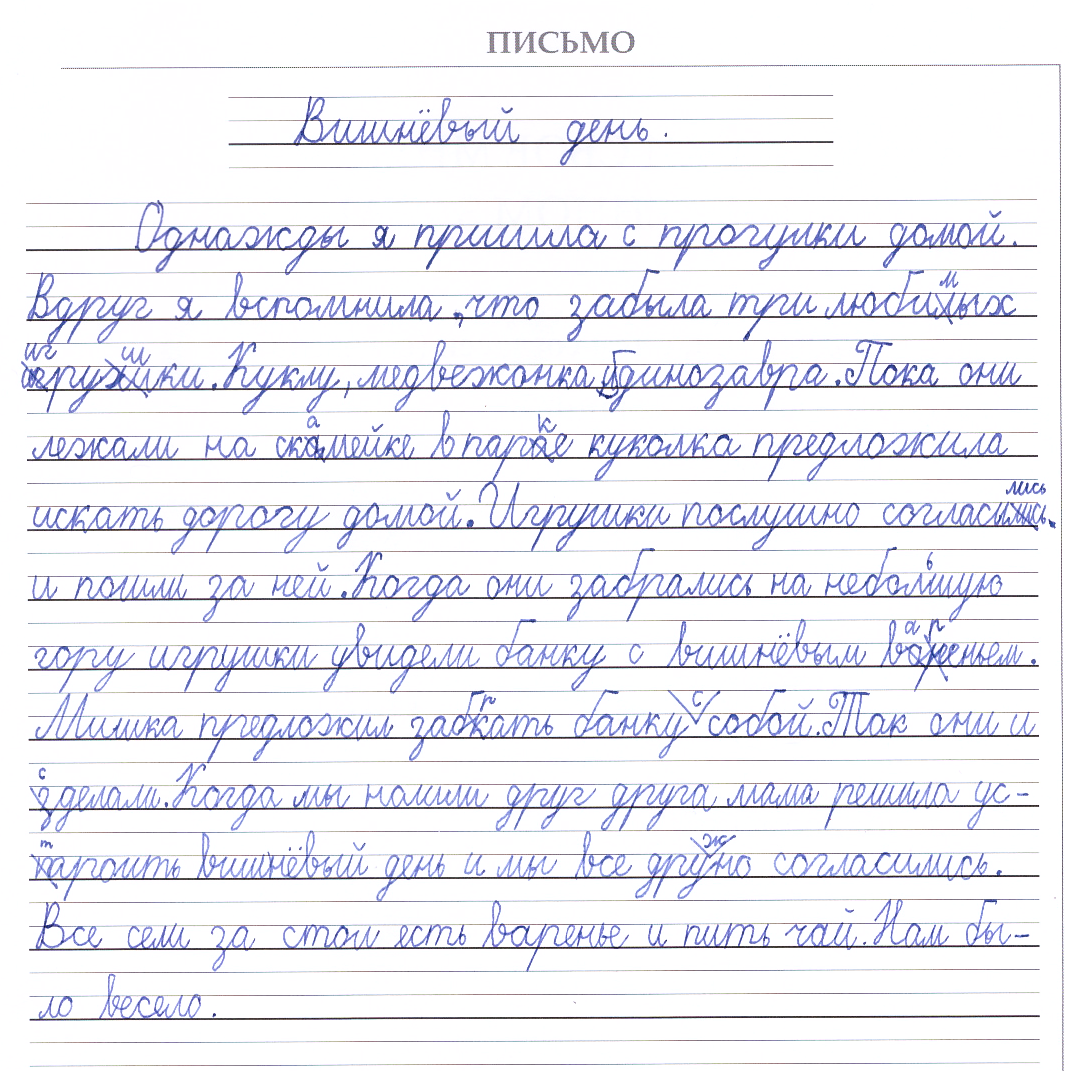 ПИСЬМО
Вишнёвый день.
Однажды я пришла с прогулки домой.
Вдруг я вспомнила, что забыла три любимых
игрушки. Куклу, медвежонка и динозавра. Пока они
лежали на скамейке в парке куколка предложила
искать дорогу домой. Игрушки послушно согласились
и пошли за ней. Когда они забрались на небольшую
гору игрушки увидели банку с вишнёвым вареньем.
Мишка предложил забрать банку с собой. Так они и
сделали. Когда мы нашли друг друга мама решила ус-
троить вишнёвый день и мы все дружно согласились.
Все сели за стол есть варенье и пить чай. Нам бы-
ло весело.